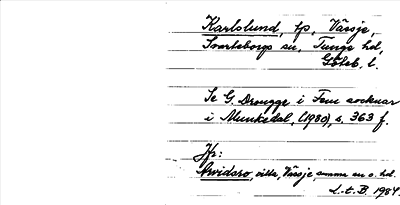 Karlslund, tp, Vässje,
Svarteborgs sn, Tunge hd,
Göteb. l.
Se G. Drougge i Fem socknar
i Munkedal, (1980), s. 363 f.
Jfr:
Arvidsro, villa, Vässje, samma sn o. hd.
L.-t. B. 1984.